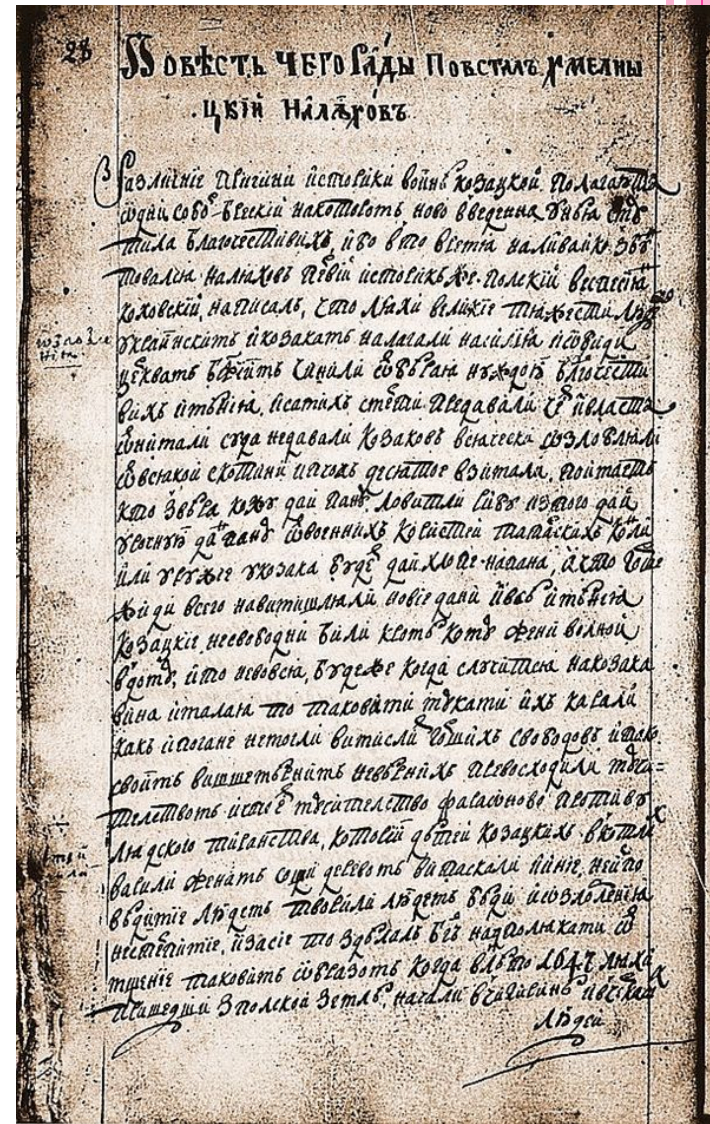 28
Повѣсть чего ради повсталъ хмелны
цкій на ляховъ
Различніе причини историки войнъ козацкой полагаютъ
ново введенна унѣя
тила благочестивихъ, ибо в то время наливайко збун
товался на ляховъ первій историкъ же полскій веспесіян
коховскій, написалъ, что ляхи великіе тяжести людем
украинскимъ и козакамъ налагали насилія и обиди
церквамъ бжіимъ чинили нуждою благочести
вихъ имѣнія, и самихъ смерти предавали чести и власти
суда недавали козаковъ всячески озлобляли
всякой скотини и пчолъ десятое взимали, пойматъ
кто звѣра кожу дай пану ловитли рибу из того дай
урочную дань пану военнихъ користей татарскихъ кони
или оружіе у козака будет дай хлопе на пана, а кто
всего навимишляли новіе дани и всѣ имѣнія
козацкіе, несвободни били кромѣ жени волной
в дому, и то невовся, буде же когда случится на козака
вина и малая то таковими муками их карали
какъ и погане немогли вимислит горшихъ свободовъ и тако
своимъ невѣрнихъ превосходили мучи=
телствомъ и что мучителство фараоново противу
людского тиранства, которій дѣтей козацкихъ в котлах
варили женамъ сосци деревомъ витискали и иніе, неиспо
вѣдиміе людемъ творили людемъ бѣди и озлобленія
нестерпиміе, и за сіе то здѣлалъ бгъ над поляками
мщеніе таковимъ образомъ когда в лѣто 1647 ляхи
пришедши з полской землѣ, начали в чигиринѣ
людей